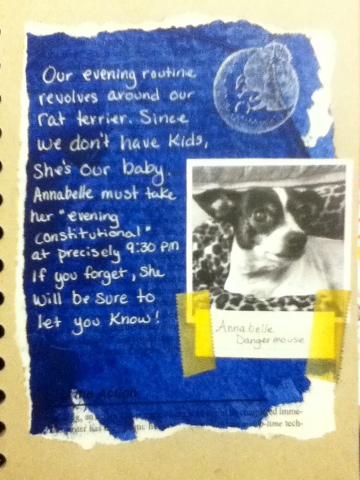 Our evening routine
revolves around our
rat terrier. Since
we don't have kids,
She's our baby.
Annabelle must take
her "evening
constitutional"
at precisely 9:30 pm
If you forget, she
will be sure to
let you know!
Annabelle
Dangermouse
Action
imme-
-time tech-